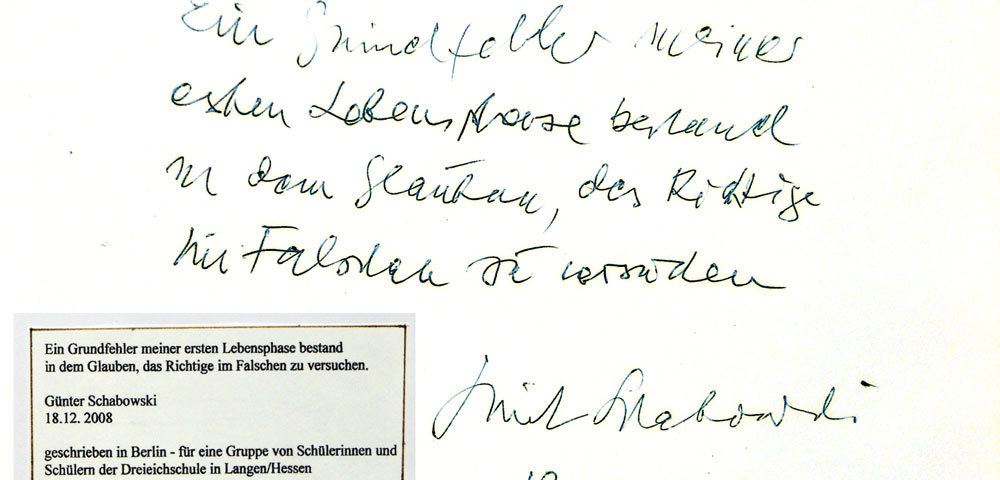 Ein Grundfehler meiner
ersten Lebensphase bestand
in dem Glauben, das Richtige
im Falschen zu versuchen
Günter Schabowski
Ein Grundfehler meiner ersten Lebensphase bestand
in dem Glauben, das Richtige im Falschen zu versuchen.
Günter Schabowski
18.12. 2008
geschrieben in Berlin - für eine Gruppe von Schülerinnen und
Schülern der Dreieichschule in Langen/Hessen